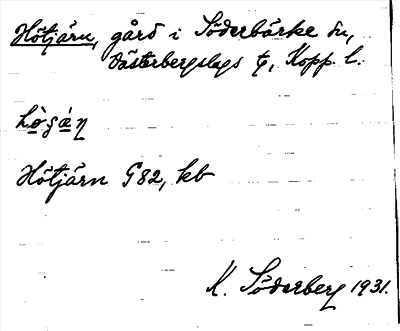 Hötjärn, gård i Söderbärke sn,
Västerbergslags tg, Kopp. l.
Hötjärn G82, kb
K. Söderberg 1931.